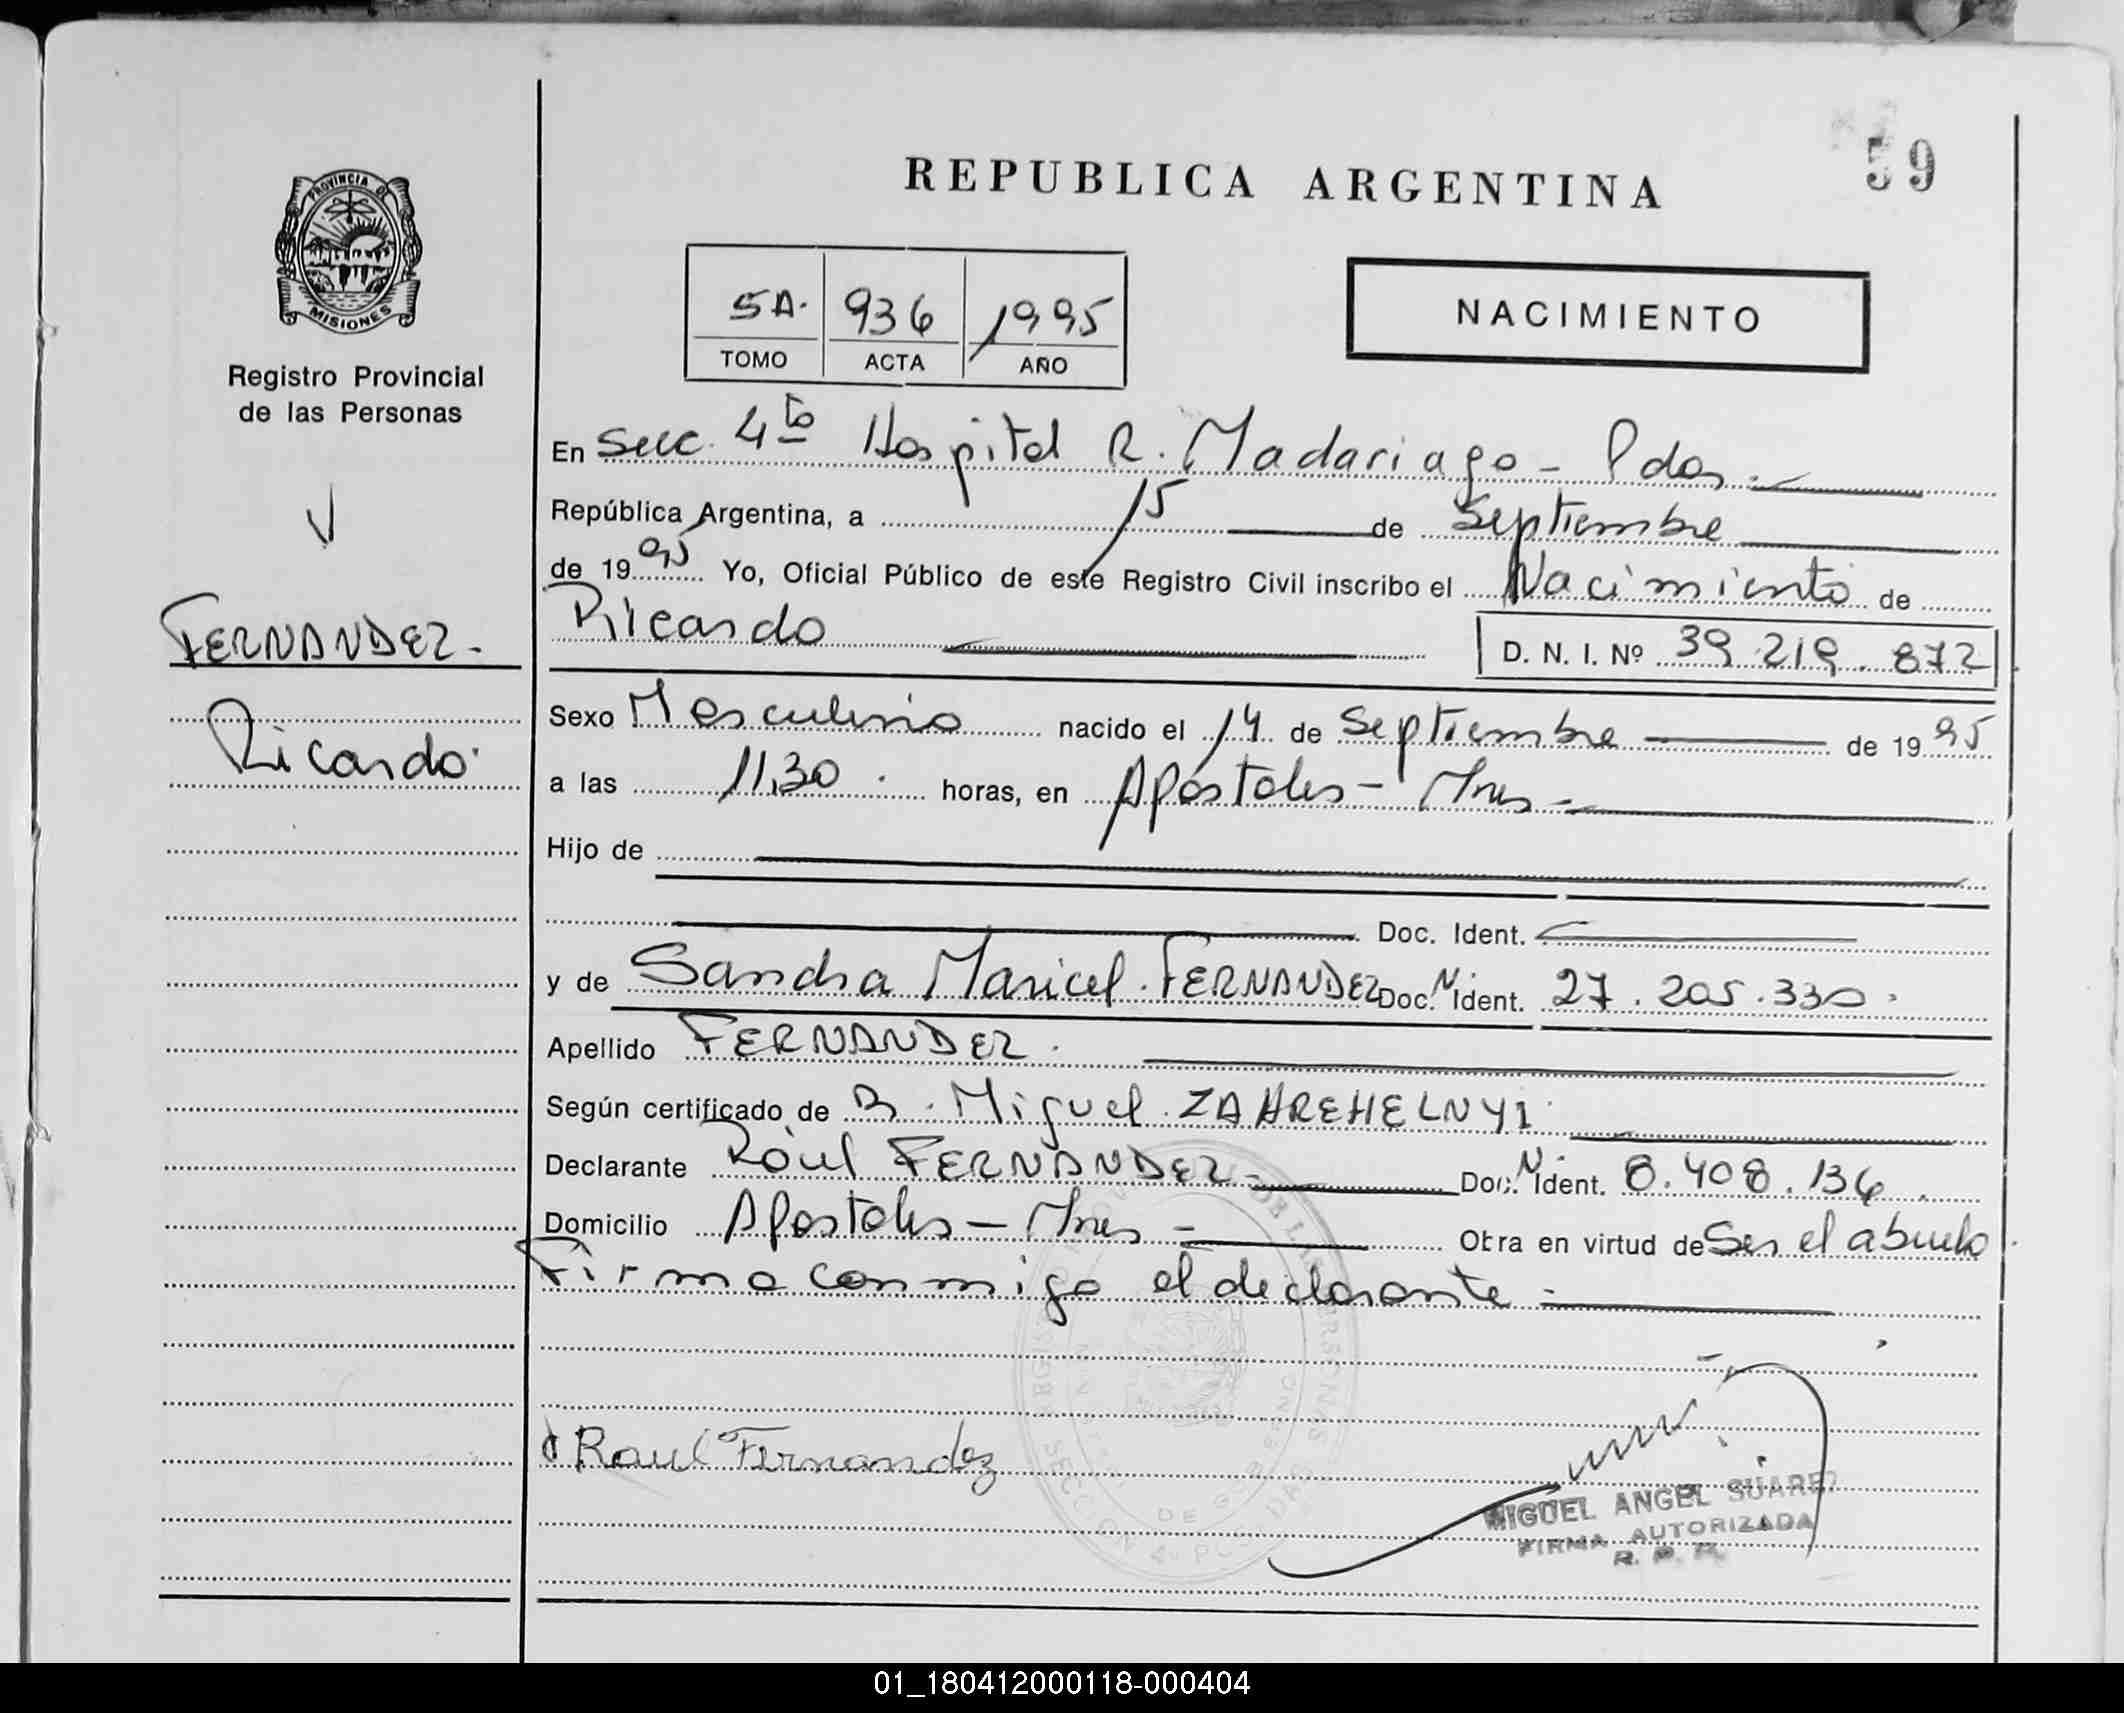 REPUBLICA ARGENTINA
59
PROVINCIA DE
MISIONES
Registro Provincial
de las Personas
5A. 936 1995
TOMO ACTA AÑO
NACIMIENTO
FERNANDEZ.
Ricardo
En Secc. 4to Hospital R. Madariaga - Pdas
República Argentina, a 15 de Septiembre
de 1995 Yo, Oficial Público de este Registro Civil inscribo el Nacimiento de
Ricardo D. N. I. Nº 39.219.872
Sexo Masculino nacido el 14 de Septiembre de 1995
a las 11,30 horas, en Apóstoles - Mnes -
Hijo de
Doc. Ident.
y de Sandra Maricel FERNANDEZ Doc. N. Ident. 27.205.330.
Apellido FERNANDEZ.
Según certificado de Miguel
Declarante Raúl FERNANDEZ - Doc. N. Ident. 8.408.136.
Domicilio Apostoles - Mnes - Obra en virtud de Ser el abuelo
Firma conmigo el declarante -
Raul Fernandez
MIGUEL ANGEL SUAREZ
FIRMA AUTORIZADA
R. P. P.
01_180412000118-000404